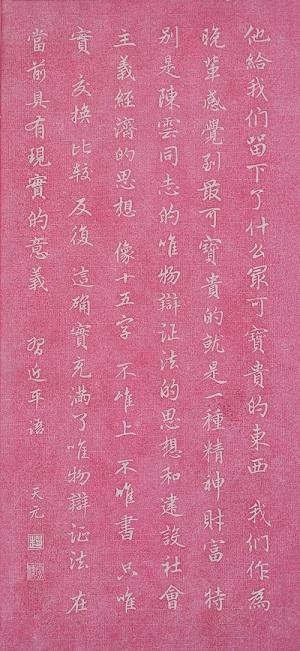 他給我们留下了什么最可寳貴的東西 我们作為
晚輩感覺到最可寳貴的就是一種精神財富 特
别是陳雲同志的唯物辯证法的思想和建設社會
主義經濟的思想 像十五字 不唯上 不唯書 只唯
實 交换比较反復 這确實充滿了唯物辯证法 在
當前具有現實的意義 習近平语 天元